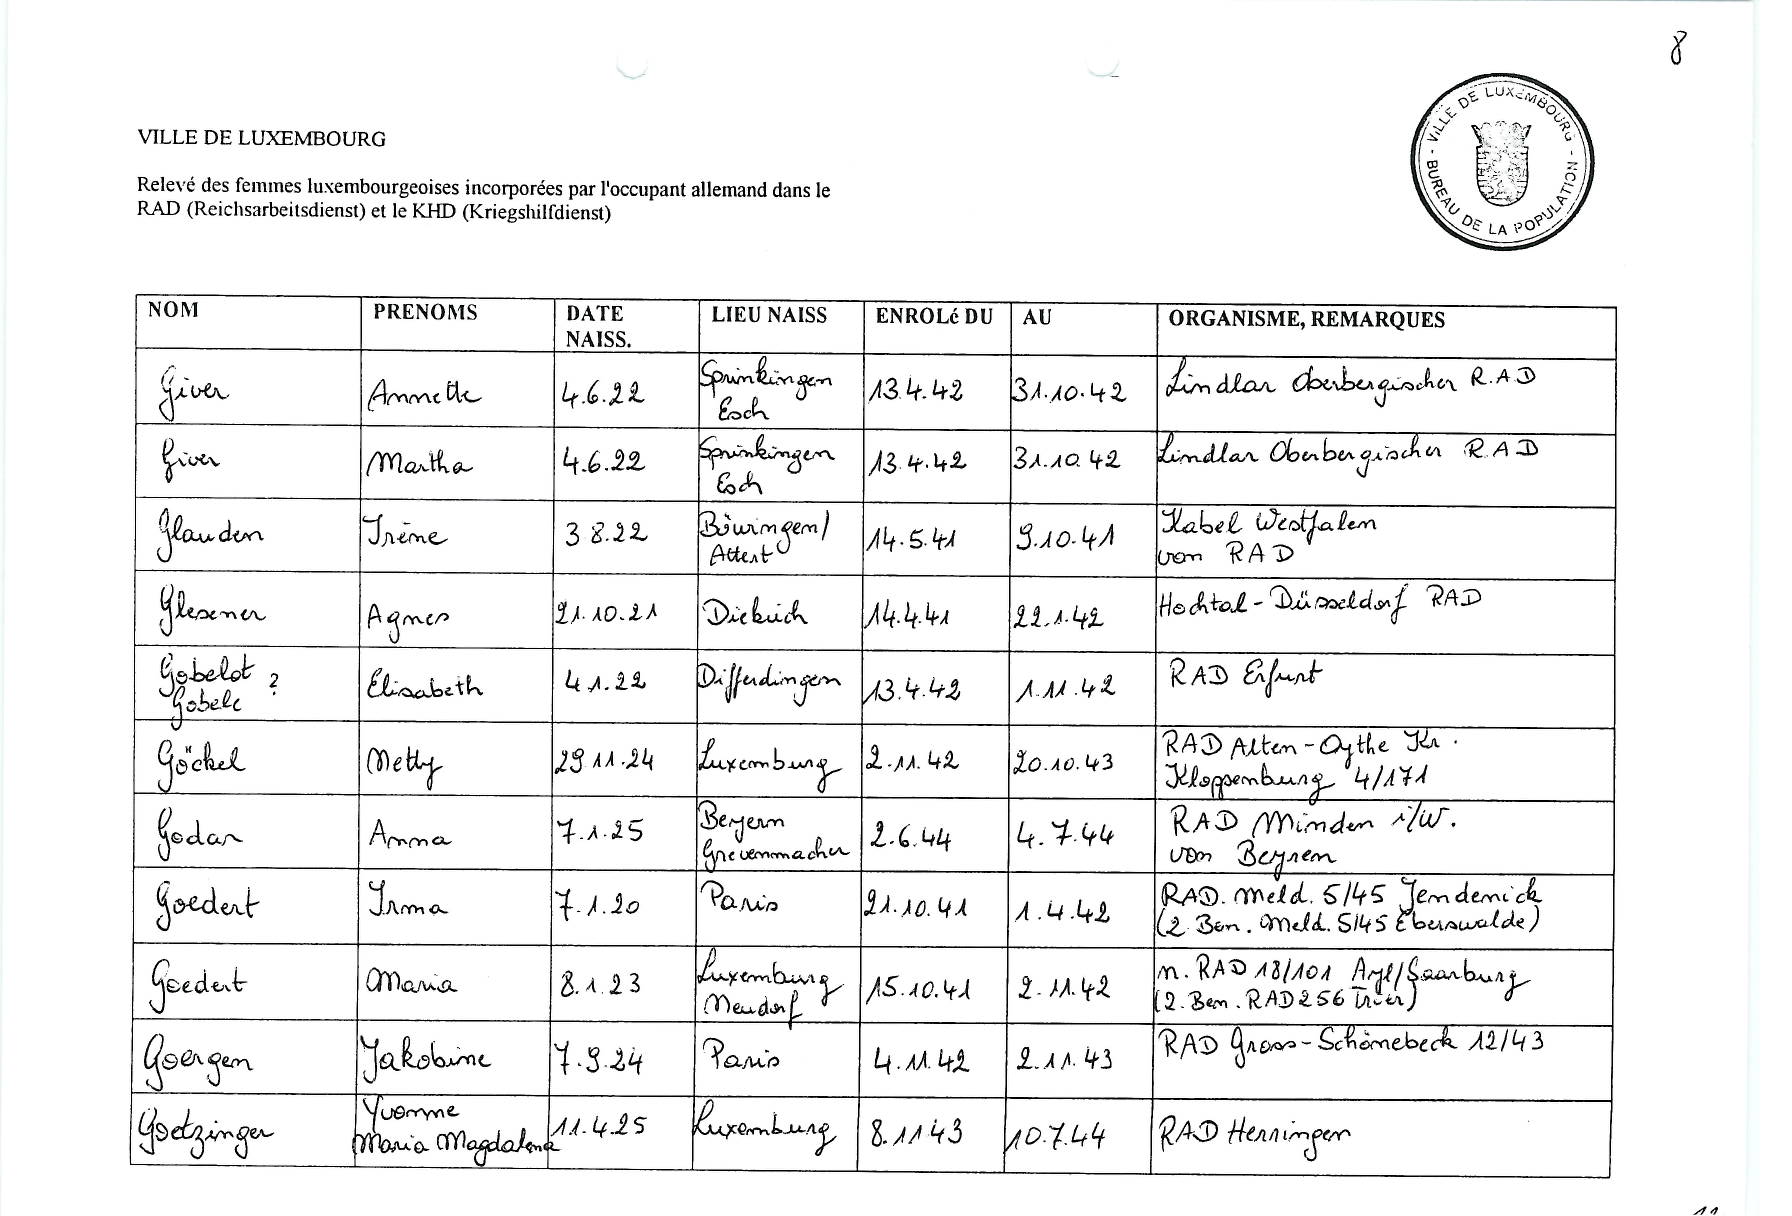 8
VILLE DE LUXEMBOURG
VILLE DE LUXEMBOURG - BUREAU DE LA POPULATION -
Relevé des femmes luxembourgeoises incorporées par l'occupant allemand dans le
RAD (Reichsarbeitsdienst) et le KHD (Kriegshilfdienst)
NOM PRENOMS DATE NAISS. LIEU NAISS ENROLé DU AU ORGANISME, REMARQUES
Giver Annette 4.6.22 Sprinkingen Esch 13.4.42 31.10.42 Lindlar Oberbergischer R.A D
Giver Martha 4.6.22 Sprinkingen Esch 13.4.42 31.10.42 Lindlar Oberbergischer R.A D
Glauden Irène 3 8.22 Böwingen/ Attert 14.5.41 9.10.41 Kabel Westfalen
von RAD
Glesener Agnes 21.10.21 Diekirch 14.4.41 22.1.42 Hochtal-Düsseldorf RAD
Gobelot ? Elisabeth 4.1.22 Differdingen 13.4.42 1.11.42 RAD Erfurt
Gobele
Göckel Netty 29 11.24 Luxemburg 2.11.42 20.10.43 RAD Alten-Oythe Kr.
Kloppenburg 4/171
Godar Anna 7.1.25 Beyern Grevenmacher 2.6.44 4.7.44 RAD Minden i/W.
von Beyren
Goedert Irma 7.1.20 Paris 21.10.41 1.4.42 RAD. Meld. 5/45 Jendenick
(2. Ben. Meld. 5/45 Eberswalde)
Goedert Maria 8.1.23 Luxemburg Neudorf 15.10.41 2.11.42 n. RAD 18/101 Ayl/Saarburg
(2. Ben. RAD 256 Trier)
Goergen Jakobine 7.9.24 Paris 4.11.42 2.11.43 RAD Gross-Schönebeck 12/43
Goetzinger Yvonne Maria Magdalena 11.4.25 Luxemburg 8.11 43 10.7.44 RAD Henningen